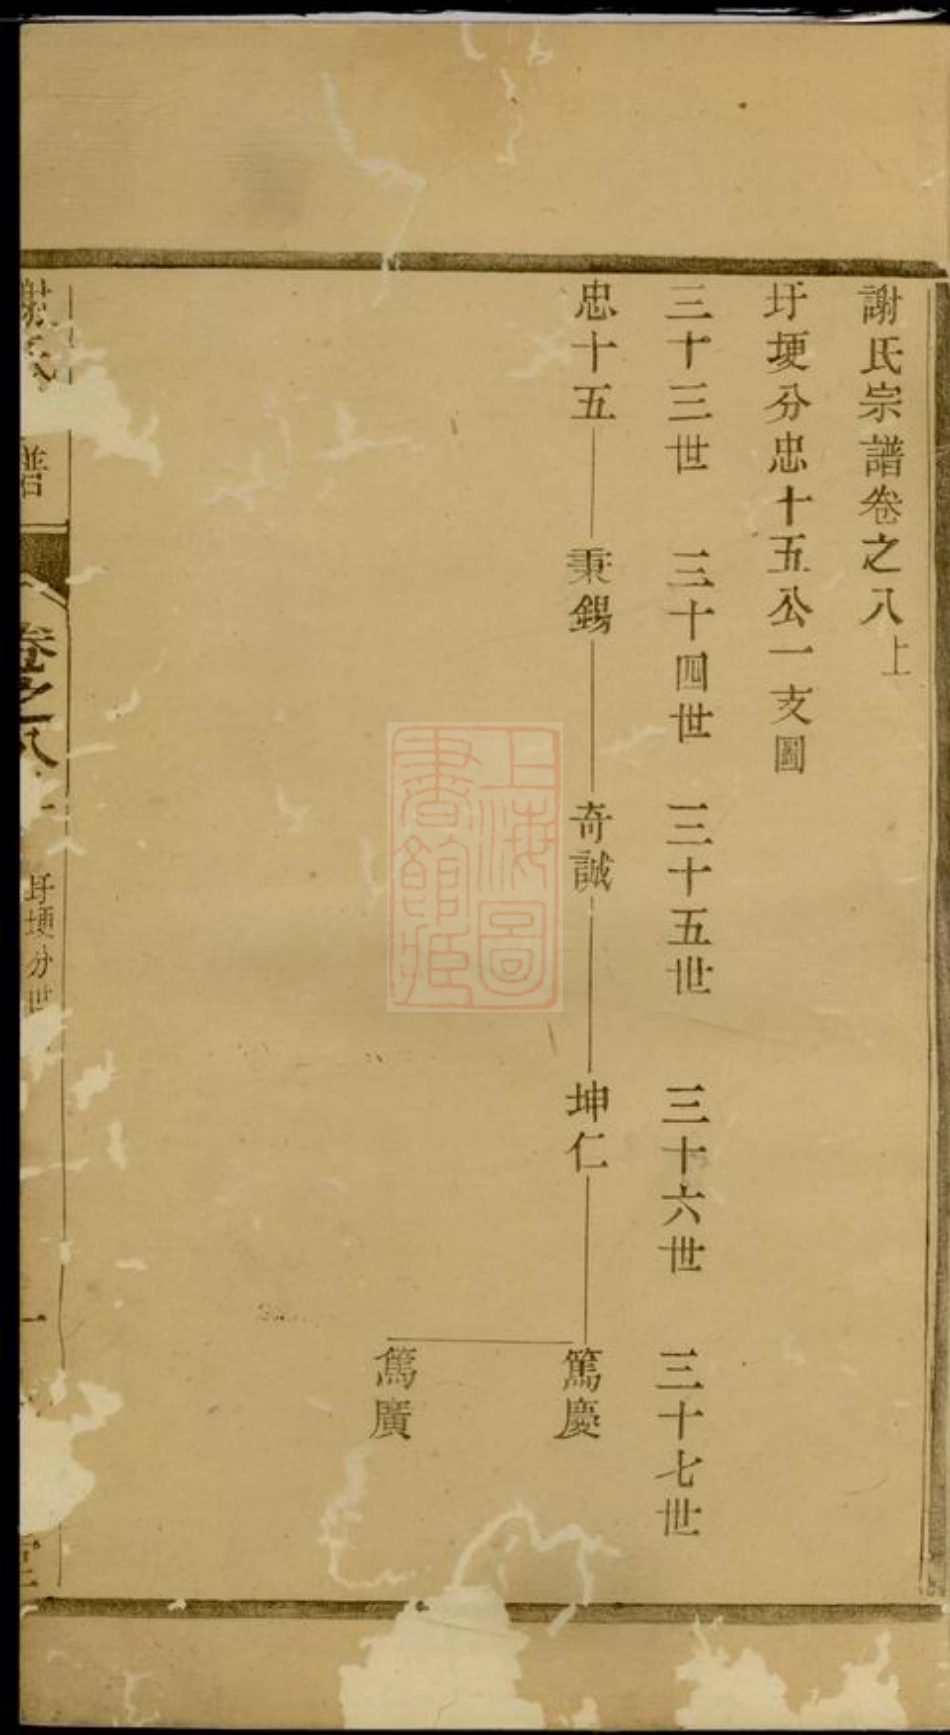 謝氏宗譜卷之八上
圩埂分忠十五公一支圖
三十三世 三十四世 三十五世 三十六世 三十七世
忠十五 秉錫 奇誠 坤仁 篤慶
篤廣
謝氏 譜
卷之八
圩埂分世
上海圖書館藏